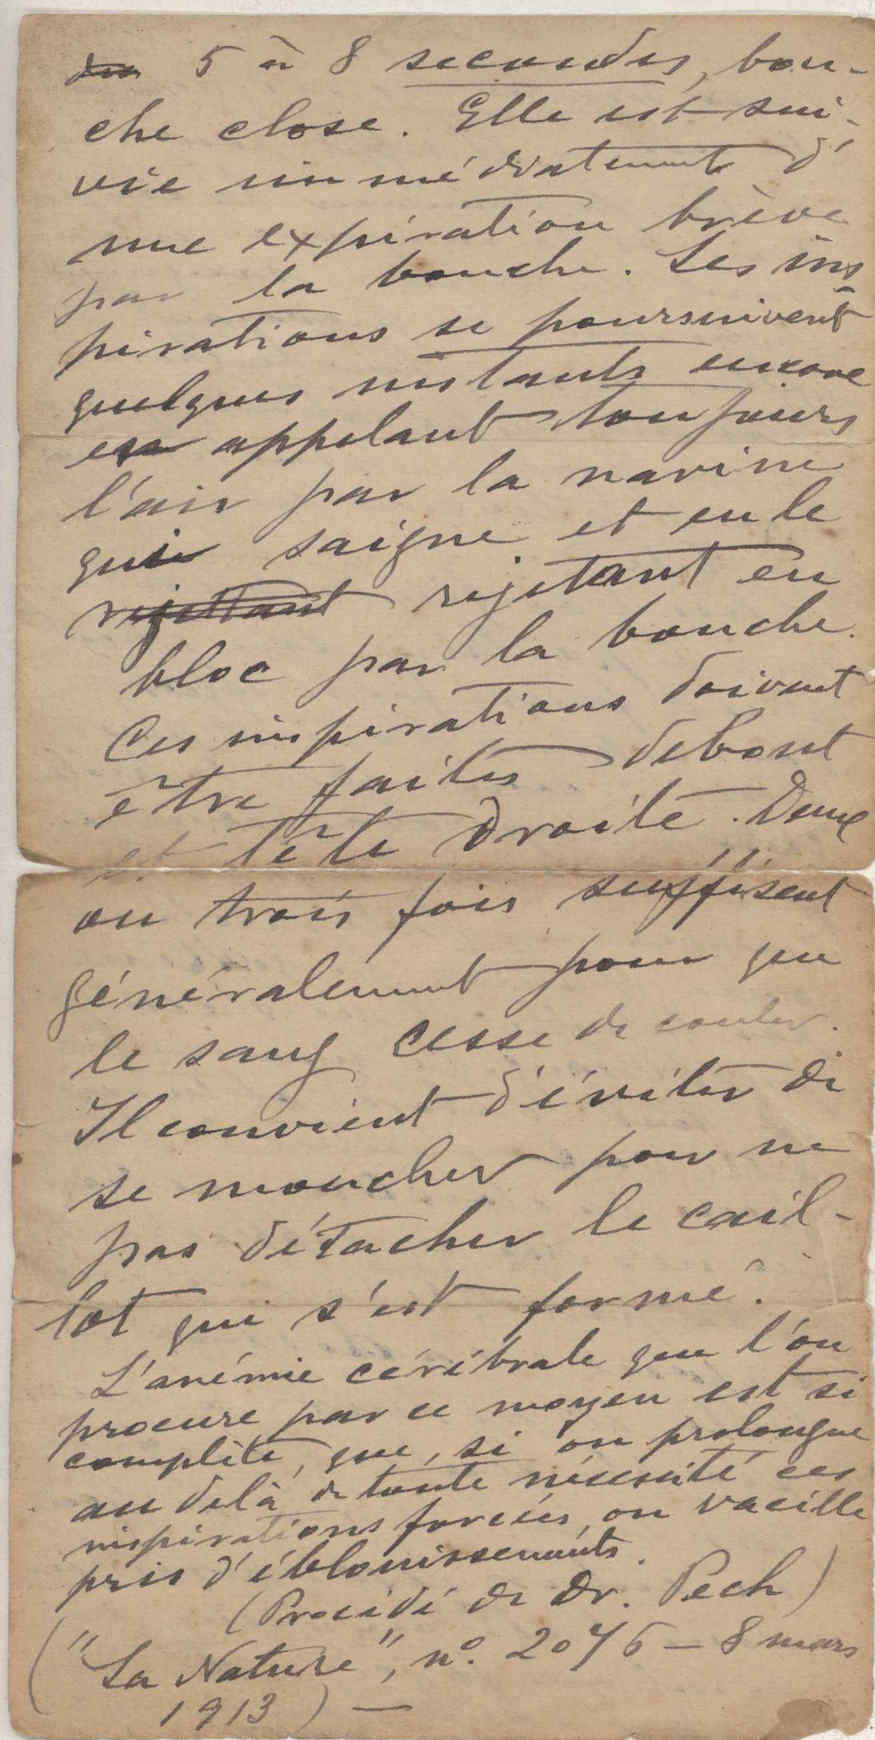 5 à 8 secondes, bou-
che close. Elle est sui-
vie immédiatement d'
une expiration brève
par la bouche. Les ins
pirations se poursuivent
quelques instants encore
en appelant toujours
l'air par la narine
qui saigne et en le
rejettant rejetant en
bloc par la bouche.
Ces inspirations doivent
être faites debout
et tête droite. Deux
ou trois fois suffisent
généralement pour que
le sang cesse de couler.
Il convient d'éviter de
se moucher pour ne
pas détacher le cail-
lot qui s'est formé.
L'anémie cérébrale que l'on
procure par ce moyen est si
complète, que, si on prolongue
au delà de toute nécessité ces
inspirations forcées, on vacille
pris d'éblouissements.
(Procédé de Dr. Pech)
("La Nature", nº. 2076 – 8 mars
1913) —